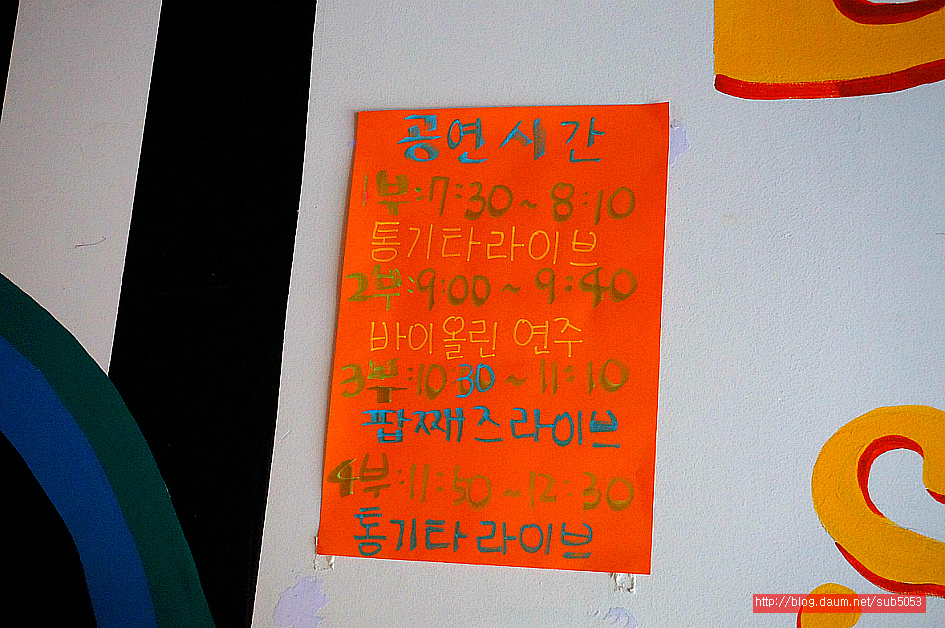 공연시간
1부:7:30~8:10
통기타라이브
2부:9:00~9:40
바이올린 연주
3부:10:30~11:10
팝째즈라이브
4부:11:50~12:30
통기타라이브
http://blog.daum.net/sub5053